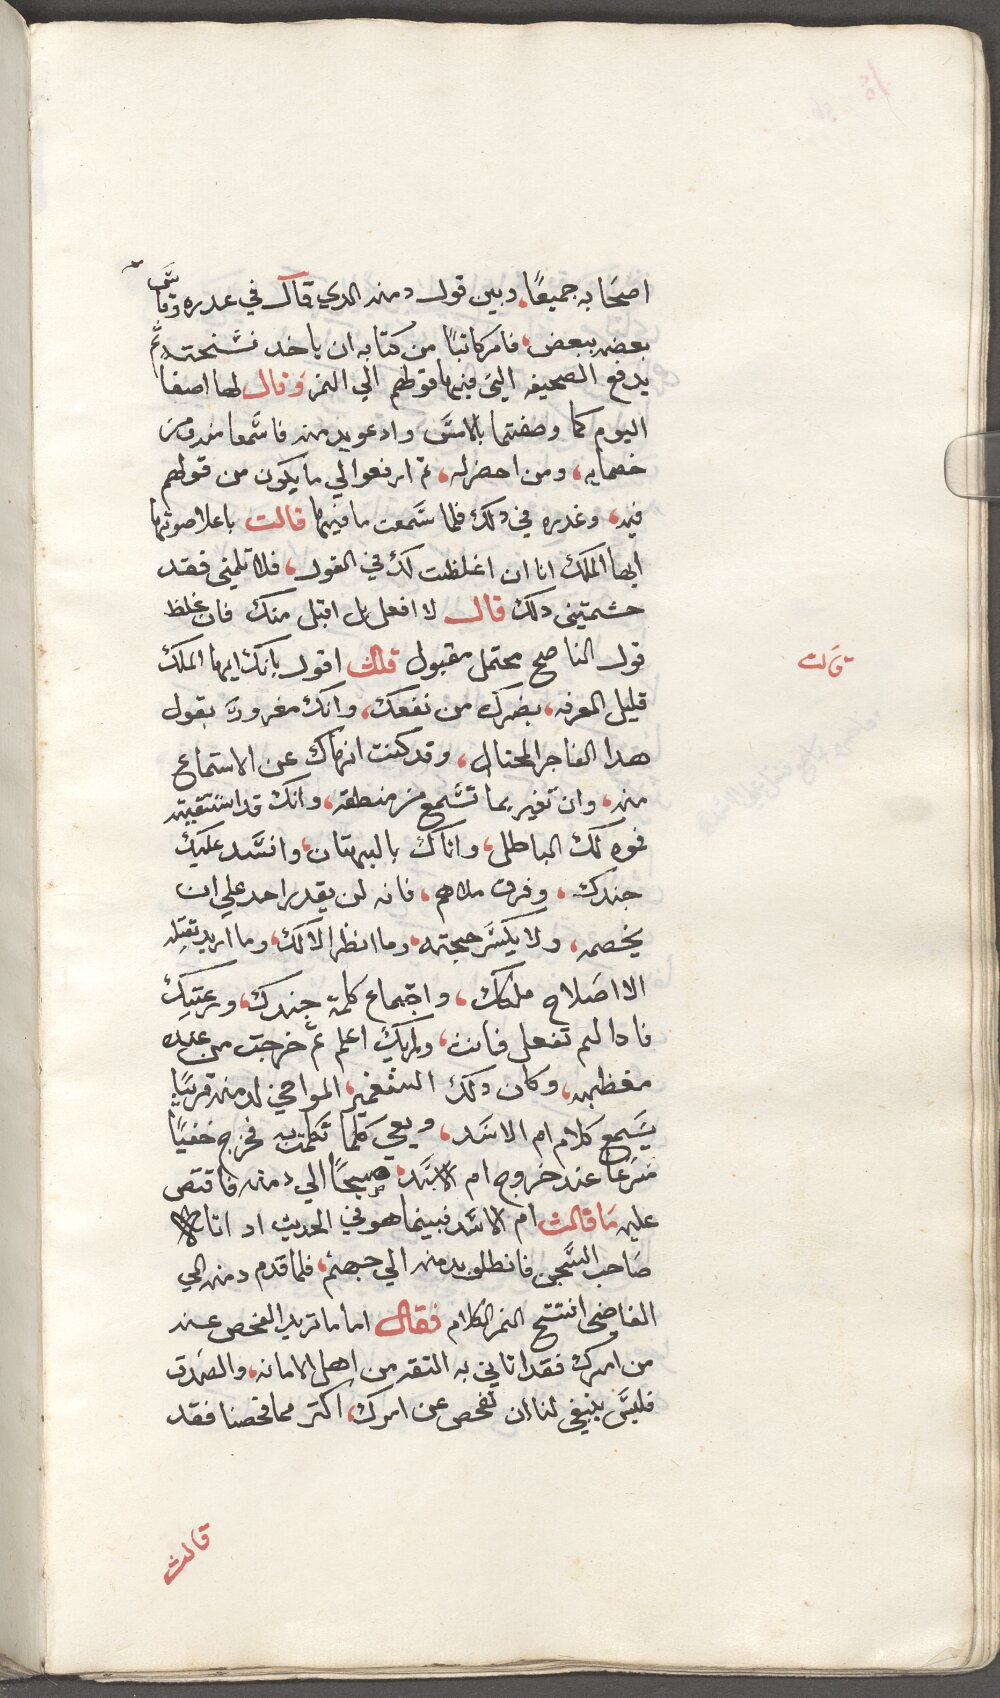 اصحابه جميعًا، وبين قول دمنه الدي قال في عدره وقاس
بعضه ببعض، فامر كاتبًا من كتابه ان ياخد نسخته ثم
يدفع الصحيفه التي فيها قولهم الي النمر وقال لها اصفا
اليوم كما وصفتما بالامس وادعو بدمنه فاسمعا منه ومن
خصمايه، ومن احضر له، ثم ارفعوا لي ما يكون من قولهم
فيه، وعدره في دلك فلما سمعت ما فيها قالت باعلا صوتها
ايها الملك انا ان اغلظت لك في القول، فلا تلمني فقد
حشمتيني دلك قال لا افعل بل اقبل منك فان غلظ
قول الناصح محتمل مقبول قلت اقول بانك ايها الملك
قالت
قليل المعرفه، بضرك من نفعك، وانك مغرور بقول
هدا الفاجر المحتال، وقد كنت انهاك عن الاستماع
منه، وان تغير بما تسمع من منطقه، وانك قد استبقيته
فموه لك الباطل، واتاك بالبهتان، وافسد عليك
جندك، وفرق ملاهم، فانه لن يقدر احد علي ان
يخصمه، ولا يكسر حجته، وما انظر الا لك، وما اريد بقتله
الا اصلاح ملكك، واجتماع كلمة جندك، ورعيتك
فادا لم تفعل فانت، ورايك اعلم ثم خرجت من عنده
مغضبه، وكان دلك الشغبر، المواخي لدمنه قريبًا
يسمع كلام ام الاسد، ويعي كلما تكلمت به فخرج خفيًا
مسرعًا عند خروج ام الاسد، صبحًا الي دمنه فاقتص
عليه ما قالت ام الاسد فبينما هو في الحديث اد اتا
صاحب السجن فانطلق بدمنه الي جمعهم، فلما قدم دمنه الي
القاضي افتتح النمر الكلام فقال اما ما تريد الفحص عنه
من امرك فقد اتاني به الثقه من اهل الامانه، والصدق
فليس ينبغي لنا ان نفحص عن امرك، اكتر مما فحصنا فقد
قالت